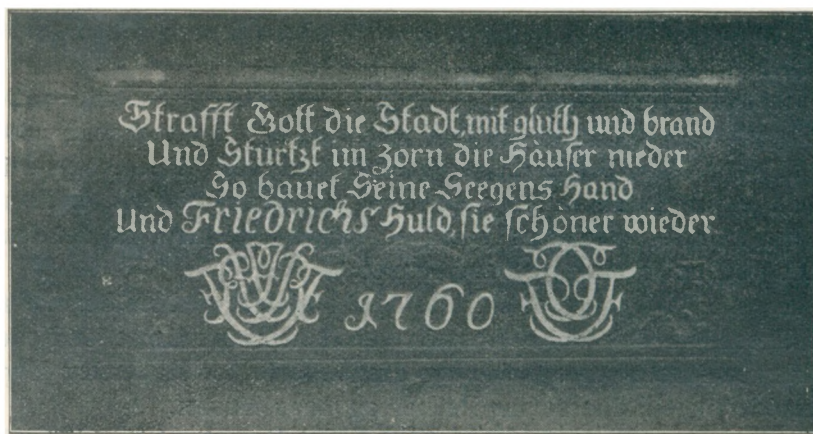 Strafft Gott die Stadt, mit gluth und brand
Und Sturtzt im Zorn die Häuser nieder
So bauet Seine Seegens Hand
Und Friedrichs Huld, sie schöner wieder
1760